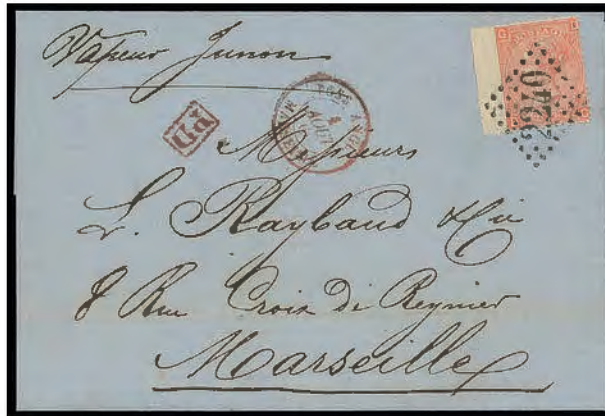 Vapeur Junon
2240
PD
4
AOUT
Messieurs
L. Raybaud & Cie
8 Rue Croix de Reynier
Marseille